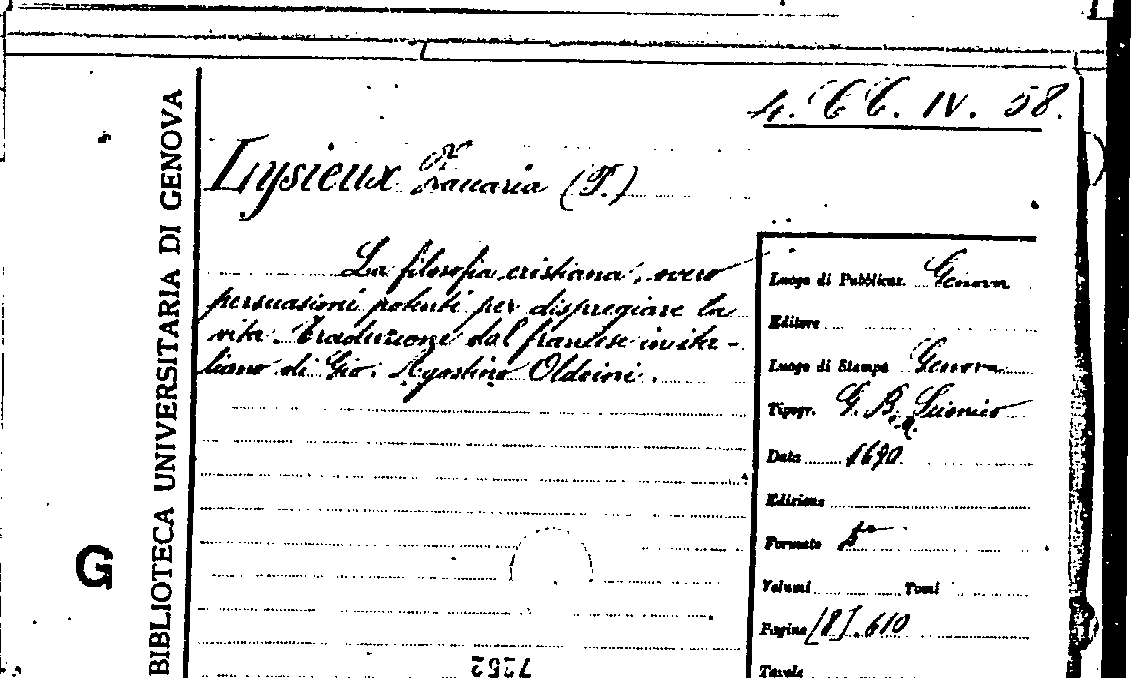 4. CC. IV. 58.
BIBLIOTECA UNIVERSITARIA DI GENOVA
G
Lysieux Zacaria (P.)
La filosofia cristiana, overo
persuasioni potenti per dispregiare la
vita. Traduzione dal francese in ita-
liano di Gio: Agostino Oldoini.
Luogo di Pubblicaz. Genova
Editore
Luogo di Stampa Genova
Tipogr. G. B.
Data 1690
Edizione
Formato
Volumi Tomi
Pagine [8]. 610
Tavole
7252